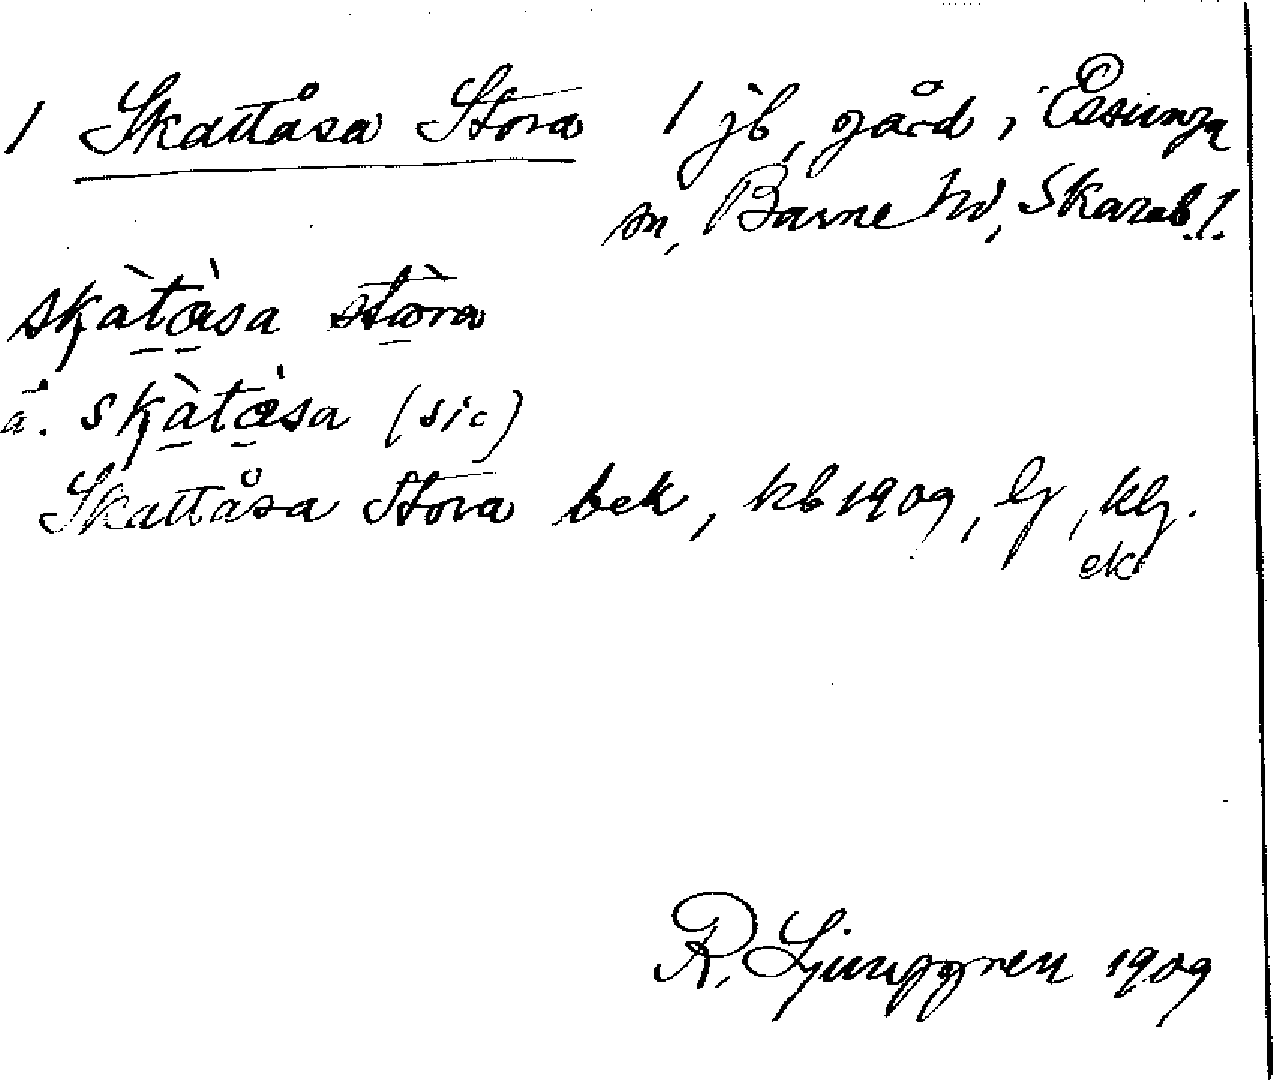 1 Skattåsa Stora 1 jb, gård i Essunga
sn, Barne hd, Skarab. l.
skàtàsa stòra
a. skàtàsa (sic)
Skattåsa Stora bek, kb 1909, lg, klg.
ek
R. Ljunggren 1909